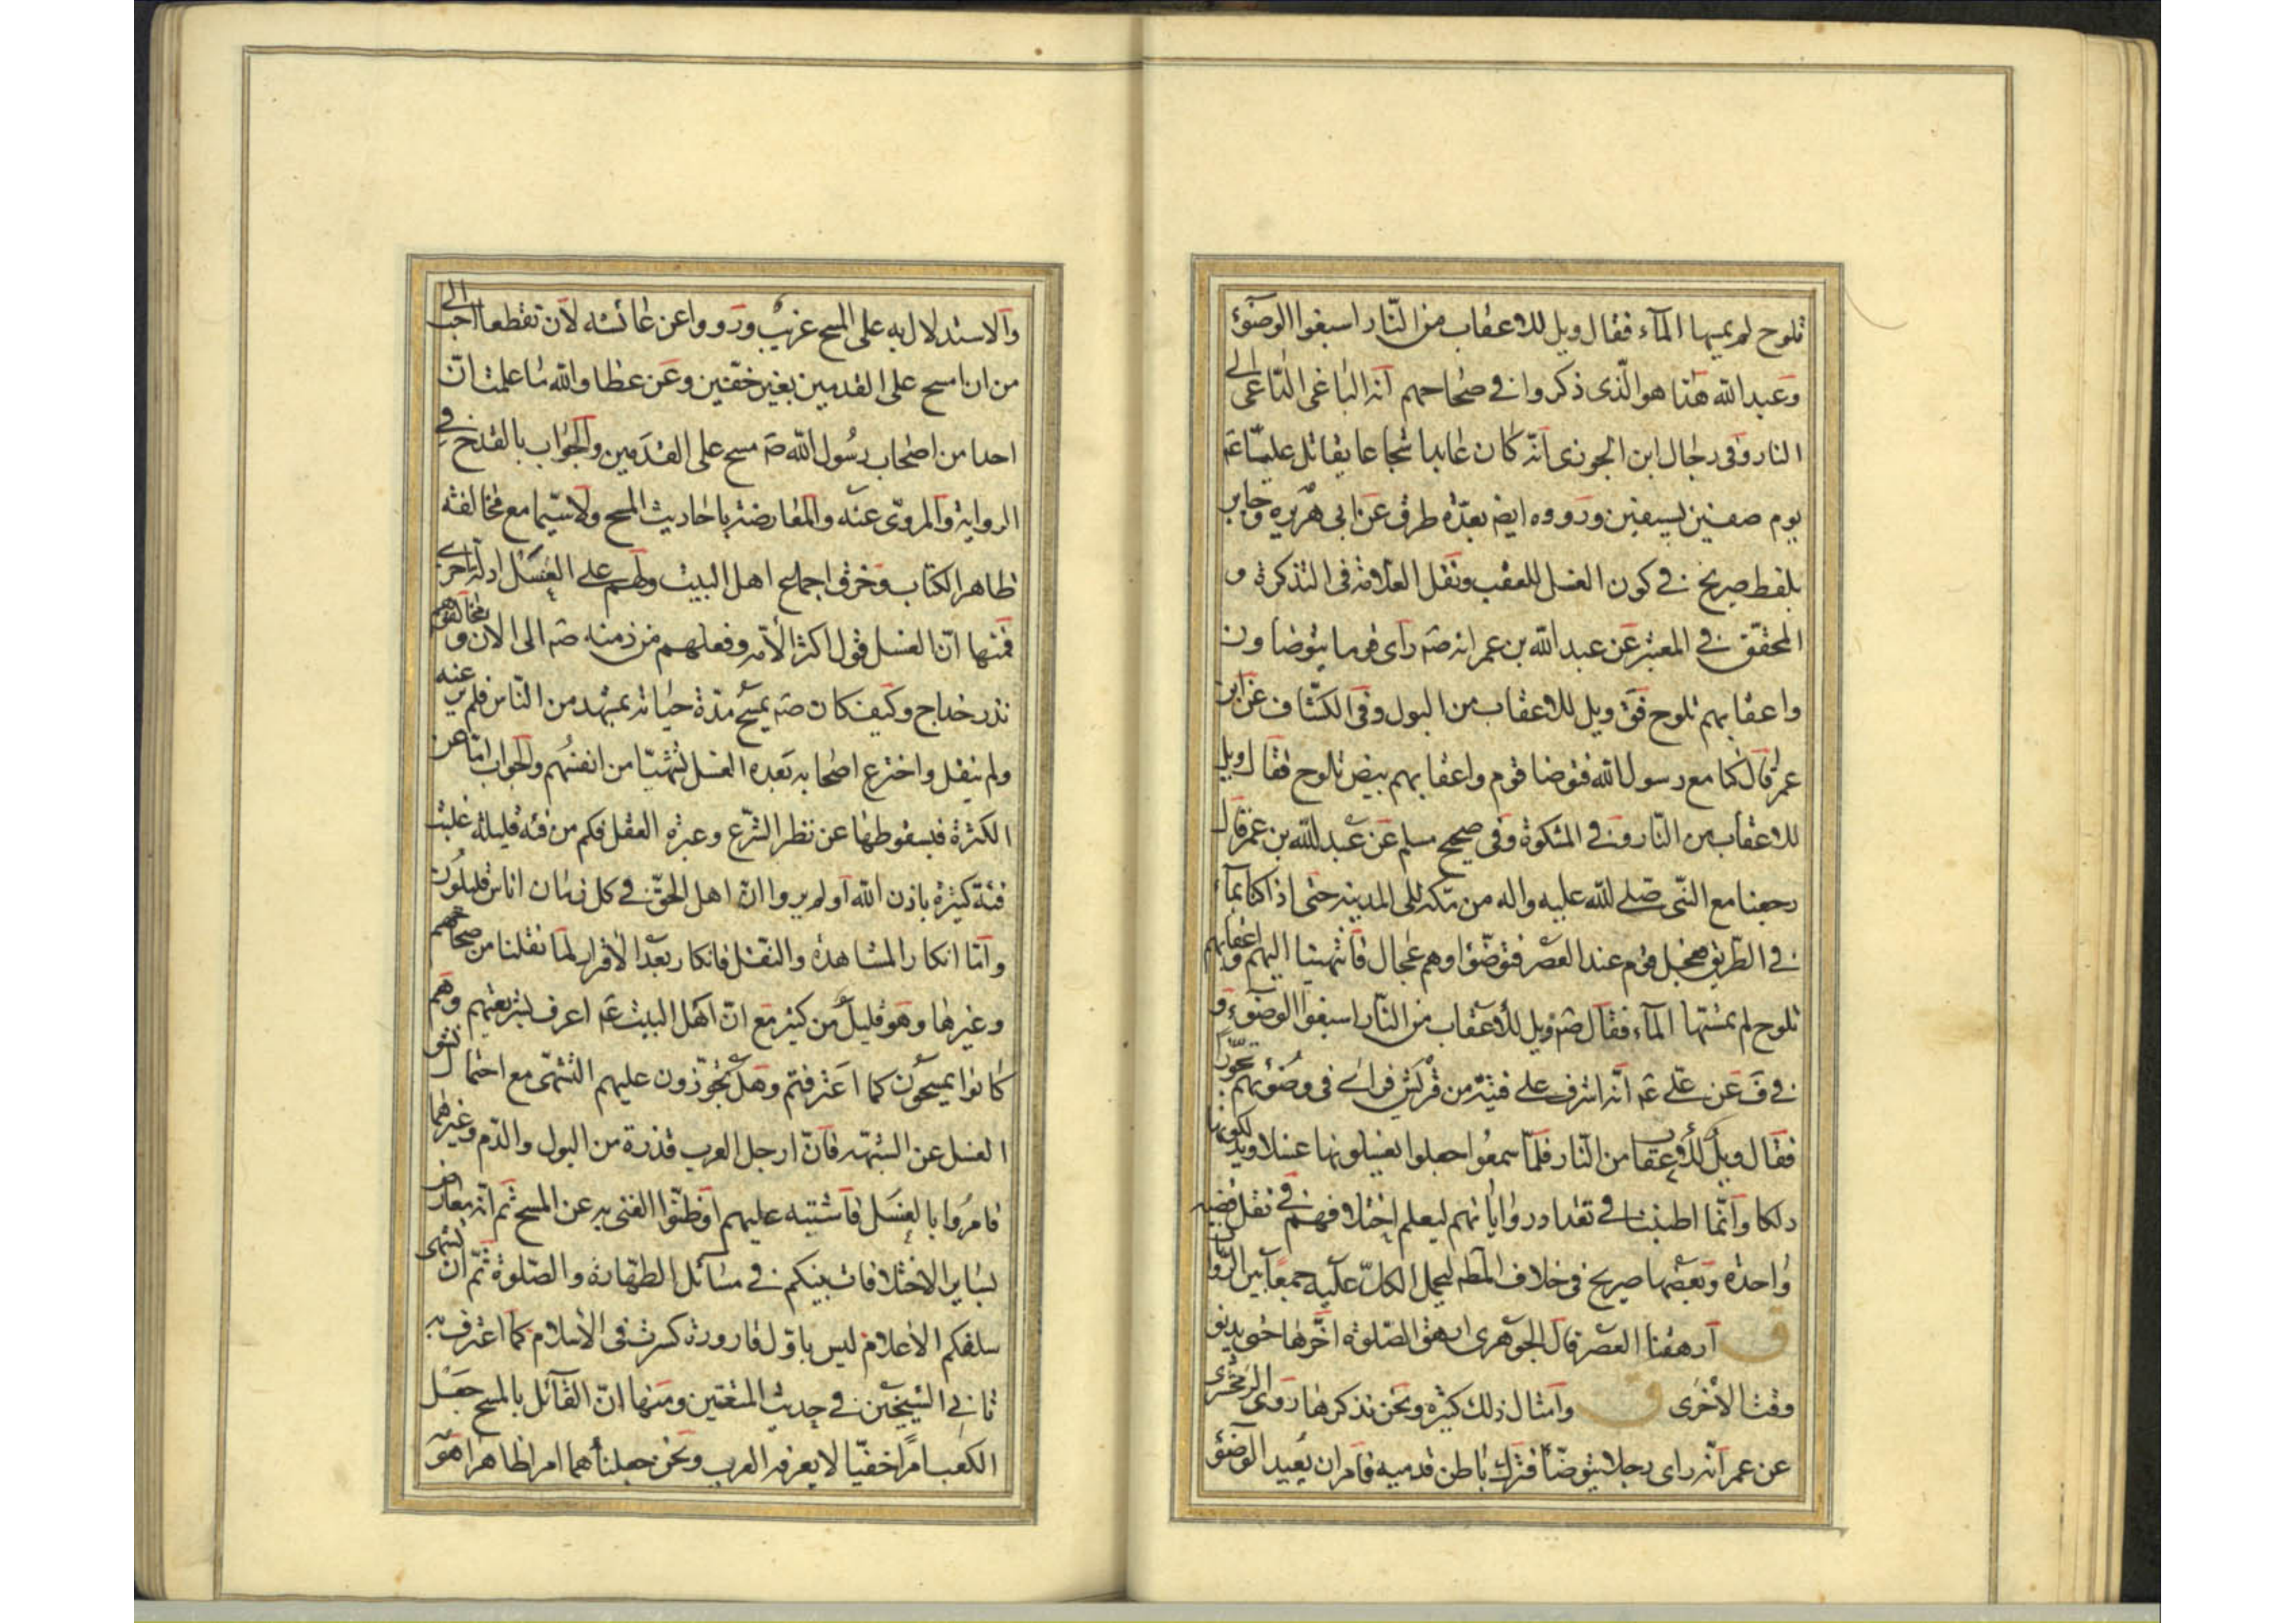 تلوح لم يمسها المآء فقال ويل للاعقاب من النّار اسبغوا الوضوٓء
وعبد الله هذا هو الّذى ذكروا فى صحاحهم انه الباغى الدّاعى الى
النار وفى رجال ابن الجوزى انّه كان عابدا شجاعا يقاتل عليّا عم
يوم صفين بسيفين ورووه ايضا بعدّة طرق عن ابى هريره وجابر
بلفظ صريح فى كون الغسل للعقب ونقل العلامة فى التذكرة و
المحقّق فى المعتبر عن عبد الله بن عمر انه صم راى قوما يتوضاون
واعقابهم تلوح فق ويل للاعقاب من البول وفى الكشّاف عن ابن
عمر قال كنا مع رسول الله فتوضا قوم واعقابهم بيض تلوح فقال ويل
للاعقاب من النّار وفى المشكوة وفى صحيح مسلم عن عبد الله بن عمر قال
رجعنا مع النّبى صلى الله عليه واله من مكه الى المدينه حتى اذا كنا بمآء
فى الطّريق فعجل قوم عند العصر فتوضّؤا وهم عجال فانتهينا اليهم واعقابهم
تلوح لم يمسّها المآء فقال صم ويل للأعقاب من النّار اسبغوا الوضوٓء و
فى ف عن علي عم انّه اشرف على فتية من قريش فراى فى وضوئهم تجوّزا
فقال ويل للأعقاب من النّار فلمّا سمعوا جعلوا يغسلونها غسلا ويدلكونها
دلكا وانّما اطنبنا فى تعداد رواياتهم ليعلم اختلافهم فى نقل قضيه
واحدة وبعضها صريح فى خلاف المط ليحمل الكلّ عليه جمعا بين الرّوايا
ق ارهقنا العصر قال الجوهرى ارهق الصّلوة اخّرها حتى يدنو
وقت الأخرى ق وامثال ذلك كثيره ونحن نذكرها روى الزمخشرى
عن عمر انّه راى رجلا يتوضّأ فترك باطن قدميه فامر ان يعيد الوضوٓء
والاستدلال به على المسح غريب ورووا عن عائشه لان تقطعا احب الى
من ان امسح على القدمين بغير خفّين وعن عطا والله ما علمت انّ
احدا من اصحاب رسول الله صم مسح على القدمين والجواب بالقدح فى
الرواية والمروىّ عنه والمعارضة باحاديث المسح ولا سيّما مع مخالفة
ظاهر الكتاب وخرق اجماع اهل البيت ولهم على الغسل ادلّة اخرى
فمنها انّ الغسل قول اكثر الأمّه وفعلهم من زمنه صم الى الان ومخالفوهم
نذر خداج وكيف كان صم يمسح مدّة حياته بمشهد من النّاس فلم ير عنه
ولم ينقل واخترع اصحابه بعده الغسل تشهّيا من انفسهم والجواب امّا عن
الكثرة فبسقوطها عن نظر الشّرع وعبرة العقل فكم من فئه قليلة غلبت
فئة كثيرة باذن الله اولم يروا انّ اهل الحقّ فى كل زمان اناس قليلون
وامّا انكار المشاهدة والنقل فانكار بعد الأقرار لما نقلنا من صحاحهم
وغيرها وهو قليل من كثير مع انّ اهل البيت عم اعرف بشريعتهم وهم
كانوا يمسحون كما اعترفتم وهل تجوّزون عليهم التشهّى مع احتمال نشو
الغسل عن الشّبهة فانّ ارجل العرب قذرة من البول والدّم وغيرهما
فامروا بالغسل فاشتبه عليهم او ظنّوا الغنى به عن المسح ثم انّه معارض
بساير الاختلافات بينكم فى مسائل الطّهارة والصّلوة ثمّ ان تشهى
سلفكم الاعلام ليس باوّل قارورة كسرت فى الأسلام كما اعترف به
ثانى الشيخين فى حديث المتعتين ومنها انّ القآئل بالمسح جعل
الكعب امرًا خفيّا لا يعرفه العرب ونحن جعلناهما امرا ظاهرا هو